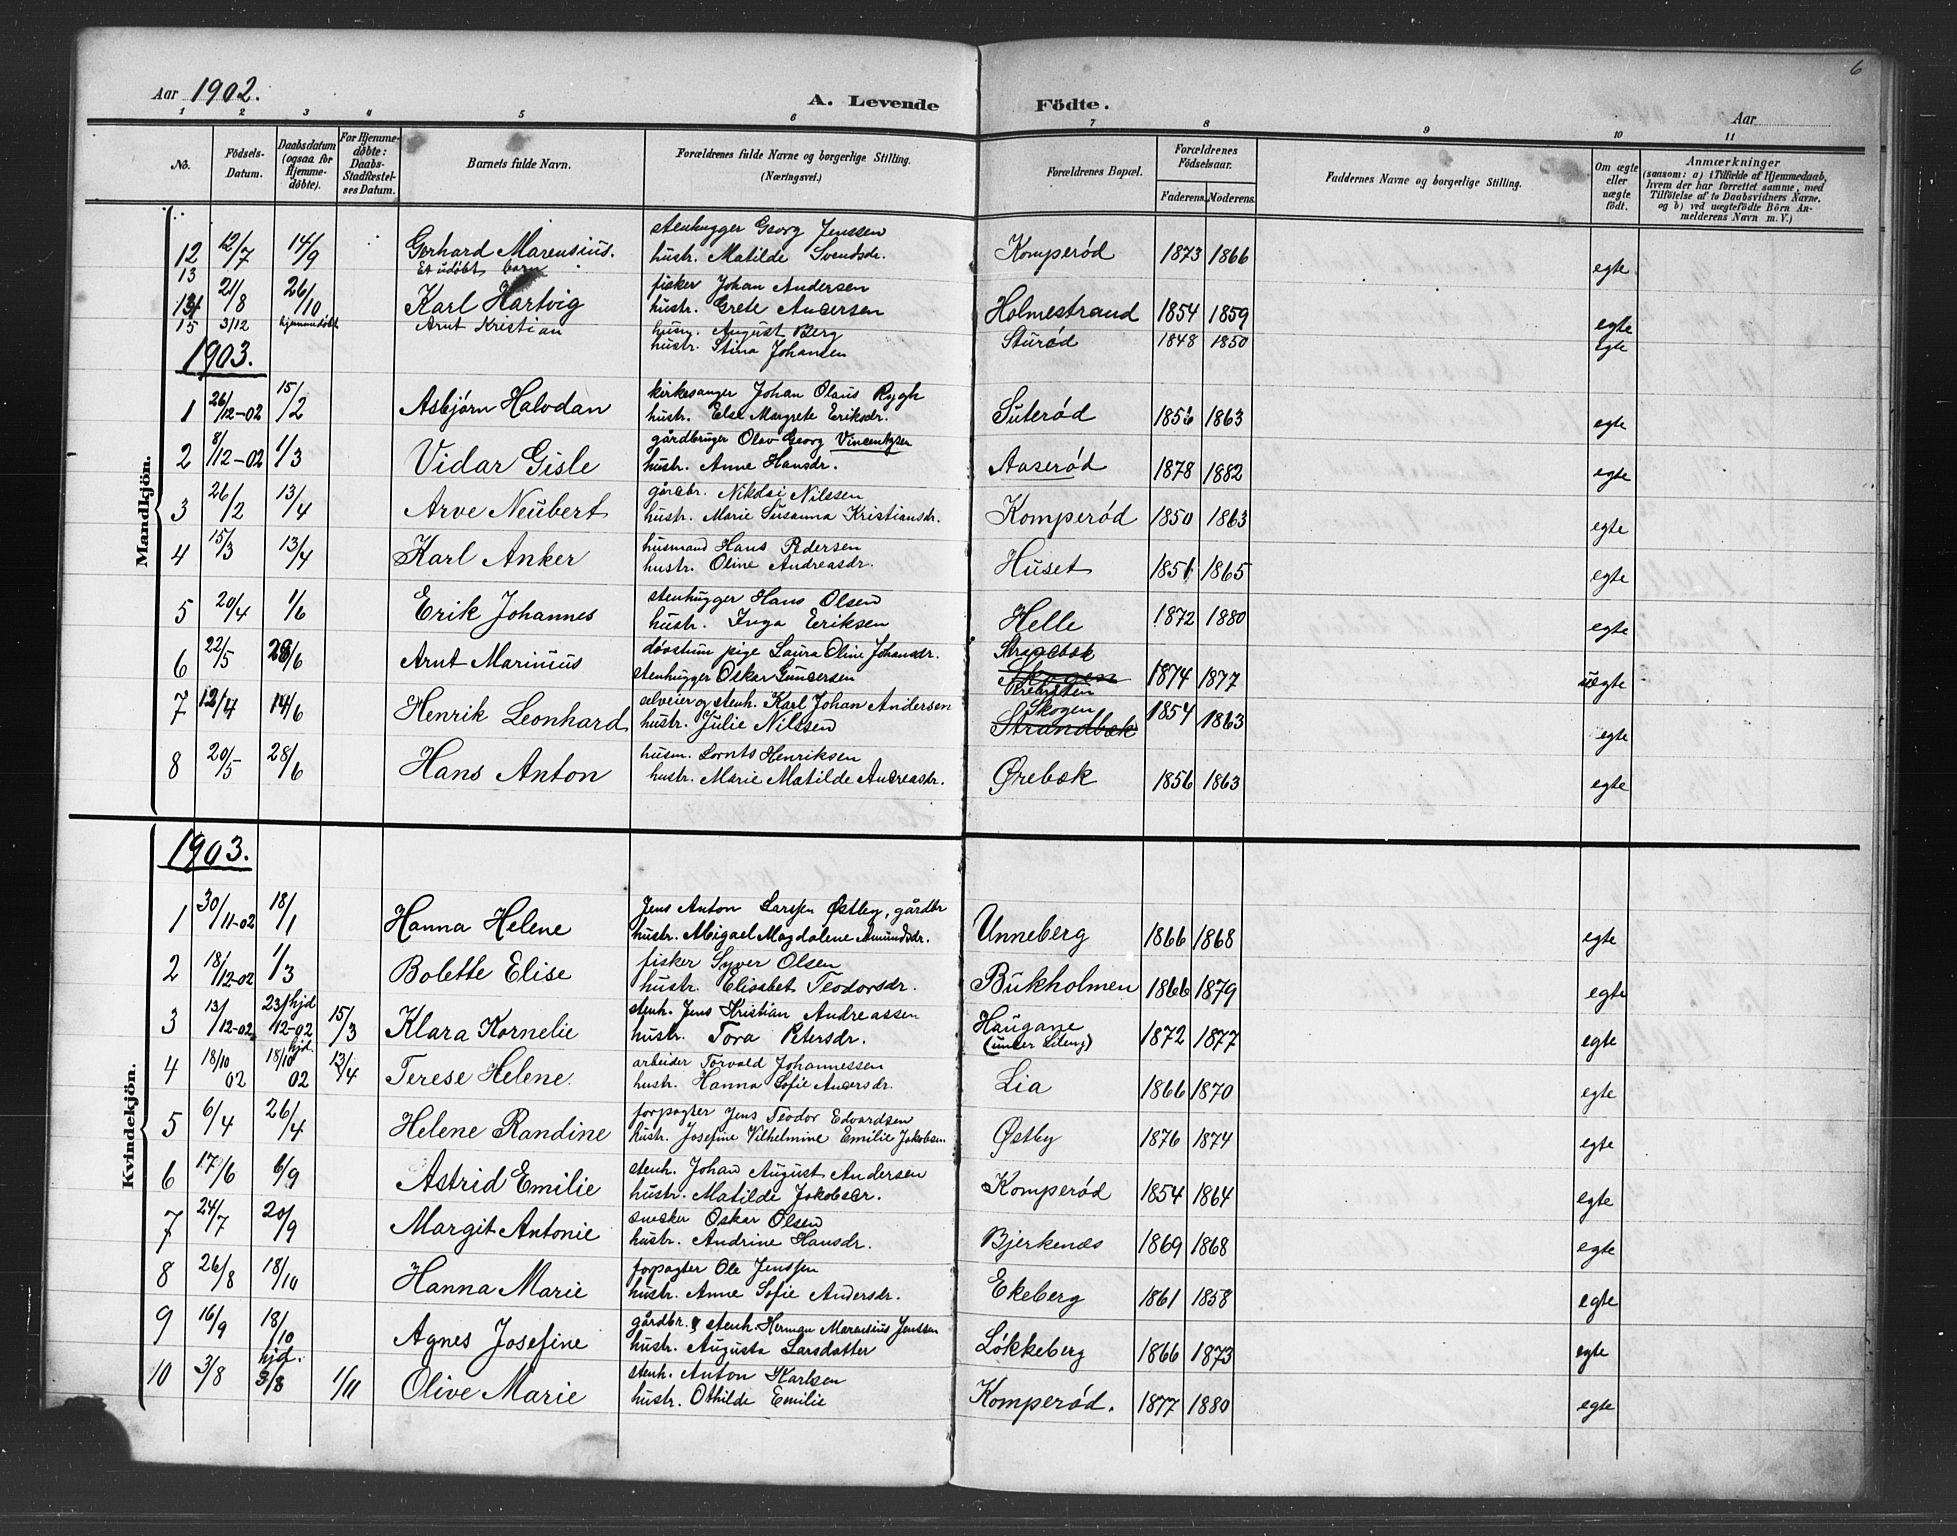 6
Aar 1902.
A. Levende Födte.
Aar
1 2 3 4 5 6 7 8 9 10 11
No.
Födsels-Datum.
Daabsdatum (ogsaa for Hjemmedöbte).
For Hjemmedöbte: Daabs-Stadfæstelses Datum.
Barnets fulde Navn.
Forældrenes fulde Navne og borgerlige Stilling. (Næringsvei.)
Forældrenes Bopæl.
Forældrenes Födselsaar.
Faderens. Moderens.
Faddernes Navne og borgerlige Stilling.
Om ægte eller uægte födt.
Anmærkninger
(saasom: a) i Tilfælde af Hjemmedaab, hvem der har forrettet samme, med Tilföielse af to Daabsvidners Navne, og b) ved uægtefödte Börn Anmelderens Navn m. V.)
Mandkjön.
stenhugger Georg Jenssen
12 12/7 14/9 Gerhard Marensius. hustr. Matilde Svendsdr. Komperød 1873 1866 egte
13 Et udöbt barn
fisker Johan Andersen
14 21/8 26/10 Karl Hartvig hustr. Grete Andersen Holmestrand 1854 1859 egte
15 3/12 hjemmedöbt Arnt Kristian husm. August Berg
hustr. Stina Johansen Sturød 1848 1850 egte
1903.
kirkesanger Johan Olaus Rygh
1 26/12-02 15/2 Asbjørn Halvdan hustr. Else Margrete Eriksdr. Suterød 1856 1863 egte
gårdbruger Olav Georg Vincentzsen
2 8/12-02 1/3 Vidar Gisle hustr. Anne Hansdr. Aaserød 1878 1882 egte
gårdbr. Nikolai Nilssen
3 26/2 13/4 Arve Neubert hustr. Marie Susanna Kristiansdr. Komperød 1850 1863 egte
husmand Hans Pedersen
4 15/3 13/4 Karl Anker hustr. Oline Andreasdr. Huset 1851 1865 egte
stenhugger Hans Olsen
5 20/4 1/6 Erik Johannes hustr. Inga Eriksen Helle 1872 1880 egte
døvstum pige Laura Oline Johansdr. Strandbæk
6 22/5 28/6 Arnt Marinius stenhugger Oskar Gundersen Skogen 1874 1877 uegte
selveier og stenh. Karl Johan Andersen Skogen
7 12/4 14/6 Henrik Leonhard hustr. Julie Nilssen Strandbæk 1854 1863 egte
husm. Lornts Henriksen
8 20/5 28/6 Hans Anton hustr. Marie Matilde Andreasdr. Ørebæk 1856 1863 egte
Kvindekjön.
1903.
Jens Anton Larssen Østby, gårdbr
1 30/11-02 18/1 Hanna Helene hustr. Abigael Magdalene Amundsdr. Unneberg 1866 1868 egte
fisker Syver Olsen
2 18/12-02 1/3 Bolette Elise hustr. Elisabet Teodorsdr. Bukholmen 1866 1879 egte
stenh. Jens Kristian Andreassen
3 13/12-02 23/12-02 hjd 15/3 Klara Kornelie hustr. Tora Petersdr. Haugane 1872 1877 egte
arbeider Torvald Johannessen
4 18/10 02 18/10 02 hjd. 13/4 Terese Helene. hustr. Hanna Sofie Andersdr. Lia 1866 1870 egte
forpagter Jens Teodor Edvardsen
5 6/4 26/4 Helene Randine hustr. Josefine Vilhelmine Emilie Jakobsen Østby 1876 1874 egte
stenh. Johan August Andersen
6 17/6 6/9 Astrid Emilie hustr. Matilde Jakobsdr. Komperød 1854 1864 egte
snedker Oskar Olsen
7 24/7 20/9 Margit Antonie hustr. Andrine Hansdr. Bjerkenæs 1869 1868 egte
forpagter Ole Jenssen
8 26/8 18/10 Hanna Marie hustr. Anne Sofie Andersdr. Ekeberg 1861 1858 egte
gårdbr. & stenh. Herman Marensius Jenssen
9 16/9 18/10 Agnes Josefine hustr. Augusta Larsdatter Løkkeberg 1866 1873 egte
stenh. Anton Karlsen
10 3/8 hjd. 3/8 1/11 Olive Marie hustr. Othilde Emilie Komperød. 1877 1880 egte